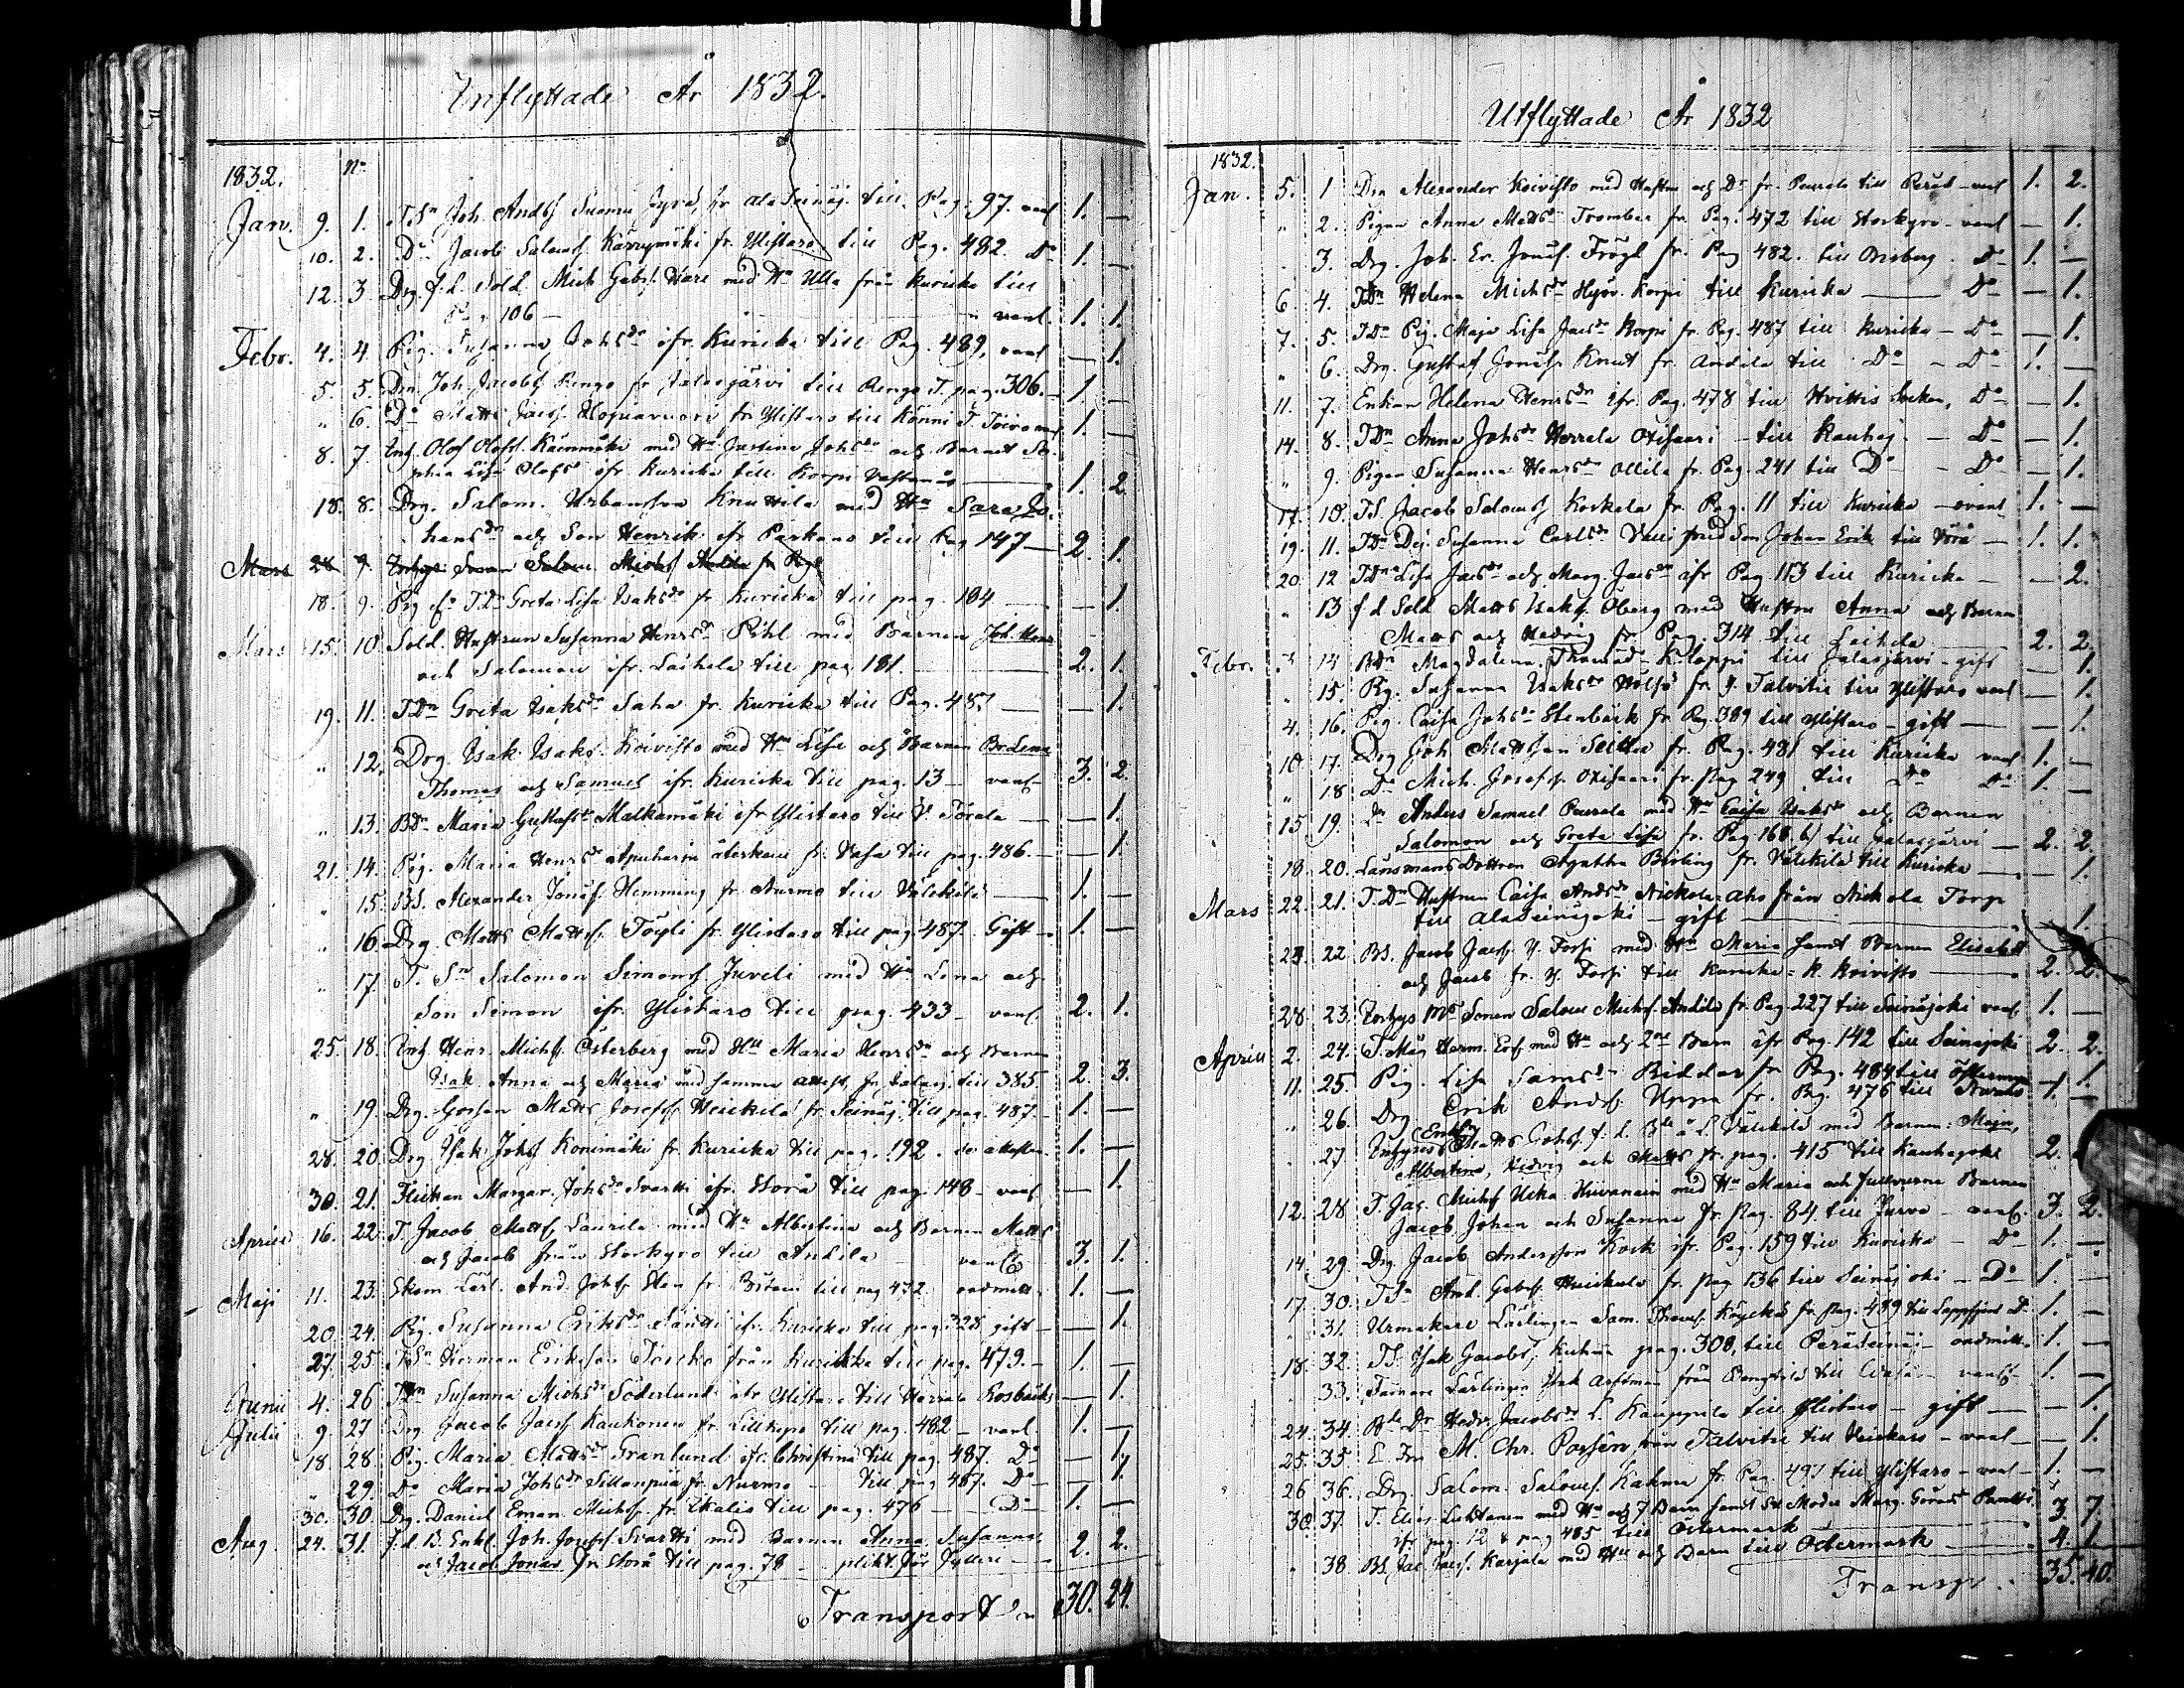 Inflyttade År 1832.
1832. No
Jan. 9. 1. T.Sn Joh. Andsf Suomu Jyrä, fr ala Seinäj. till Pag. 97. vanl 1. —
10. 2. Do Jacob Salomsf. Karrymäki fr. Ylistaro till Pag. 482. Do 1. —
12. 3. Drg f.d. Sold. Mich Gabrsf. Hare med Hu Ulla från Kuricka till
Pag 106 — vanl. 1. 1.
Febr. 4. 4. Pig. Susanna Johsdr ifr. Kuricka till Pag. 489, vanl — 1.
5. 5. Drn. Joh. Jacobsf Rengo fr Jalasjärvi till Rengo T. pag. 306. — 1. —
" 6. Do Matts Jacsf. fr Ylistaro till Könni T. 1. —
8. 7. Inh. Olof Olofsf. Kammäki med Hu Justina Johsdr och Barnet So-
phia Lisa Olofsdr ifr Kuricka till Korpi 1. 2
18. 8. Drg. Salom. Urbansson Knuttila med Hu Sara Jo-
hansdr och Son Henrik ifr Parkano till Pag 147 — 2. 1.
Mars 28 9. Inhys. Sonen Salom Michsf Andila fr Pag
18. 9. Pig ell. T.Dr Greta Lisa Isaksdr fr Kuricka till pag. 184 — — 1.
Mars 15. 10 Sold. Hustrun Susanna Henrsdr Pihl med Barnen Joh. Henr
och Salomon ifr. Laihela till pag 181. — 2. 1.
19. 11. T.Dn Greta Isaksdr Saha fr. Kuricka till Pag. 487 — — 1.
" 12. Drg. Isak Isaksf. Koivisto med Hu Lisa och Barnen Br. Lena
Thomas och Samuel ifr. Kuricka till pag. 13 — vanl — 3. 2.
" 13. BDn Maria Gustafsdr Malkamäki ifr Ylistaro till Y. Törala — — 1.
21. 14. Pig. Maria Henrsdr Apuharju återkom fr. Vasa till pag. 486. — — 1.
" 15. BS. Alexander Jonasf. Hemming fr. Nurmo till Välikylä — 1. —
" 16. Drg. Matts Mattsf. Töyli fr. Ylistaro till pag. 487. Gift — 1. —
" 17. T. Sn Salomon Simonsf Juveli med Hu Lena och
Son Simon ifr. Ylistaro till pag. 433 — vanl. 2. 1.
25. 18. Inh. Henr. Michsf. Österberg med Hu Maria Henrsdr och Barnen
Isak, Anna och Maria med samma attest, fr Jalasj. till 385. 2. 3.
" 19. Drg. Gossen Matts Josefsf. Heickilä fr. Seinäj. till pag. 487. 1. —
28. 20. Drg. Isak Johsf Konimäki fr. Kuricka till pag. 192. se attesten. 1. —
30. 21. Flickan Margar. Johsdr Svartti ifr. Storå till pag. 148 — vanl. — 1.
Aprill 16. 22. T. Jacob Mattsf. Laurila med Hu Albertina och Barnen Matts
och Jacob från Storkyro till Andila vanl 3. 1.
Maji 11. 23. Skom. Lärl. And. Johsf. Sten fr. till pag 472. oadmitt. 1. —
20. 24. Pig. Susanna Eriksdr Säntti ifr. Kuricka till pag. 328 gift — — 1.
27. 25. T.Sn Herman Eriksson från Kuricka till pag. 479. — 1. —
Junii 4. 26 TDn Susanna Michsdr Söderlund ifr Ylistaro till Herrala — 1.
Julii 9. 27 Drg. Jacob Jacsf Kaukonen fr. till pag. 482 — vanl. 1. —
18. 28. Pig. Maria Mattsdr Granlund ifr. Christina till pag. 487. Do — 1.
" 29. Do Maria Johsdr Sillanpää fr. Nurmo — till pag 487. Do — 1.
30. 30. Drg. Daniel Eman. Michsf. fr. Ikalis till pag. 476 — Do — 1. —
Aug. 24. 31. f.d. B. Enkl. Joh. Josefsf. Svartti med Barnen Anna Susanna
och Jacob Jonas fr. Storå till pag. 78 — plikt. för fylleri — 2. 2.
Transport 30. 24.
Utflyttade År 1832
1832.
Jan. 5. 1 Drn Alexander Koivisto med Hustru och Dr fr. Peurala till Peräs. — vanl 1. 2.
" 2. Pigan Anna Mattsdr Tromber fr. Pag. 472 till Storkyro — vanl — 1.
. 3. Drg. Joh. Er. Jonasf. Frögd fr. Pag 482. till Orisberg. Do 1. —
6 4. TDn Helena Michsdr Hyöv. Korpi till Kuricka — Do — 1.
7. 5. TDn Pig. Maja Lisa Jacsdr Korpi fr. Pag. 487 till Kuricka — Do — 1.
" 6. Drg. Gustaf Jonasf. Knut fr. Andila till Do — Do 1. —
11. 7. Enkan Helena Henrsdr ifr. Pag. 478 till Hvittis Socken, Do — 1.
14. 8. TDn Anna Johsdr Herrala Oxisaari — till Kauhaj. — Do — 1.
" 9. Pigan Susanna Henrsdr Ollila fr. Pag. 241 till Do — Do — 1.
17. 10. TS. Jacob Salomsf Koskela fr. Pag. 11 till Kuricka — vanl 1. —
19. 11. TDn Dej. Susanna Carlsdr Valli med Son Johan Erik till Vörå — 1. 1.
20. 12 TDne Lisa Jacsdr och Marg. Jacsdr ifr Pag. 113 till Kuricka — — 2.
" 13 f.d. Sold Matts Isaksf. Öberg med Hustru Anna och Barnen
Matts och Hedvig fr. Pag. 314 till Laihela — 2. 2.
Febr. 3. 14 BDn Magdalena Thomasdr Kiloppi till Jalasjärvi — gift — 1.
" 15. Pig. Susanna Isaksdr fr. Y. Talvitie till Ylistaro vanl — 1.
4. 16. Pig. Caisa Johsdr Stenbäck fr. Pag. 389 till Ylistaro — gift — — 1.
10 17. Drg Joh. Mattsson Seittu fr. Pag. 481 till Kuricka vanl 1. —
" 18 Do Mich. Josefsf. Oxisaari fr. Pag 249 till Do Do 1. —
15 19. Dr Anders Samuel Peurala med Hu Caisa Isaksdr och Barnen
Salomon och Greta Lisa fr. Pag 168. b) till Jalasjärvi — 2. 2.
18. 20. Länsmans Dottren Agatha Birling fr. Välikylä till Kuricka — — 1.
Mars 22. 21. T.Dn Hustrun Caisa Andsdr Nickola-aho från Nickola Torp
till Alaseinäjoki — gift — 1.
23. 22 BS. Jacob Jacsf. Y. Forsi med Hu Maria samt Barnen Elisabet
och Jacob fr. Y. Forsi till Kuricka = K. Koivisto — 2. 2.
28 23. Inhys Mos Sonen Salom Michsf. Andila fr. Pag. 227 till Seinäjoki vanl. 1. —
Aprill 2. 24. T. Måg Herm. Ersf. med Hu och 2ne Barn ifr Pag. 142 till Seinäjoki 2. 2.
11. 25. Pig. Lisa Samsdr Riddar fr. Pag. 484 till Östermyra — 1.
" 26. Drg. Erik Andrsf. Uppa fr. Pag. 476 till Nurmo 1. —
" 27 Inhyses Enkl. Matts Johsf. f.d. Bde å L. Välikylä med Barnen Maja,
Albertina, Hedvig och Matts fr. pag. 415 till Kauhajoki 2.
12. 28 T. Jac. Michsf Uska Hirvanain med Hu Maria och Barnen
Jacob, Johan och Susanna fr. Pag. 84 till Jurva — vanl. 3. 2.
14. 29. Drg. Jacob Andersson Kock ifr. Pag. 159 till Kuricka — Do 1. —
17. 30. TSn And. Gabrsf. Heickala fr. pag 136 till Seinäjoki — Do — 1. —
" 31. Urmakare Lärlingen Sam. Thomsf. fr. pag. 489 till Lappfjerd Do 1. —
18. 32. TS. Isak Jacobsf. Kuhna pag. 308, till Peräseinäj — oadmitt. 1. —
" 33. Lärlingen Isak från till Wasa — vanl — 1. —
24. 34. Bde Dr Hedv. Jacobsdr L. Kauppila till Ylistaro — gift — — 1.
25. 35. E. Fru M. Chr. Possén från Talvitie till — vanl — — 1.
26 36. Drg. Salom. Salomsf. Kakma fr. Pag. 497 till Ylistaro — vanl — 1. —
30 37. T. Elias Luhtanen med Hu och 7 Barn samt Sv. Moder Marg. Göransdr 3. 7.
ifr pag. 12 & pag 485 till Östermark
" 38. BS. Jac. Jacsf. Karjala med Hu och Barn till Östermark — 4. 1.
Transp. 35. 40.